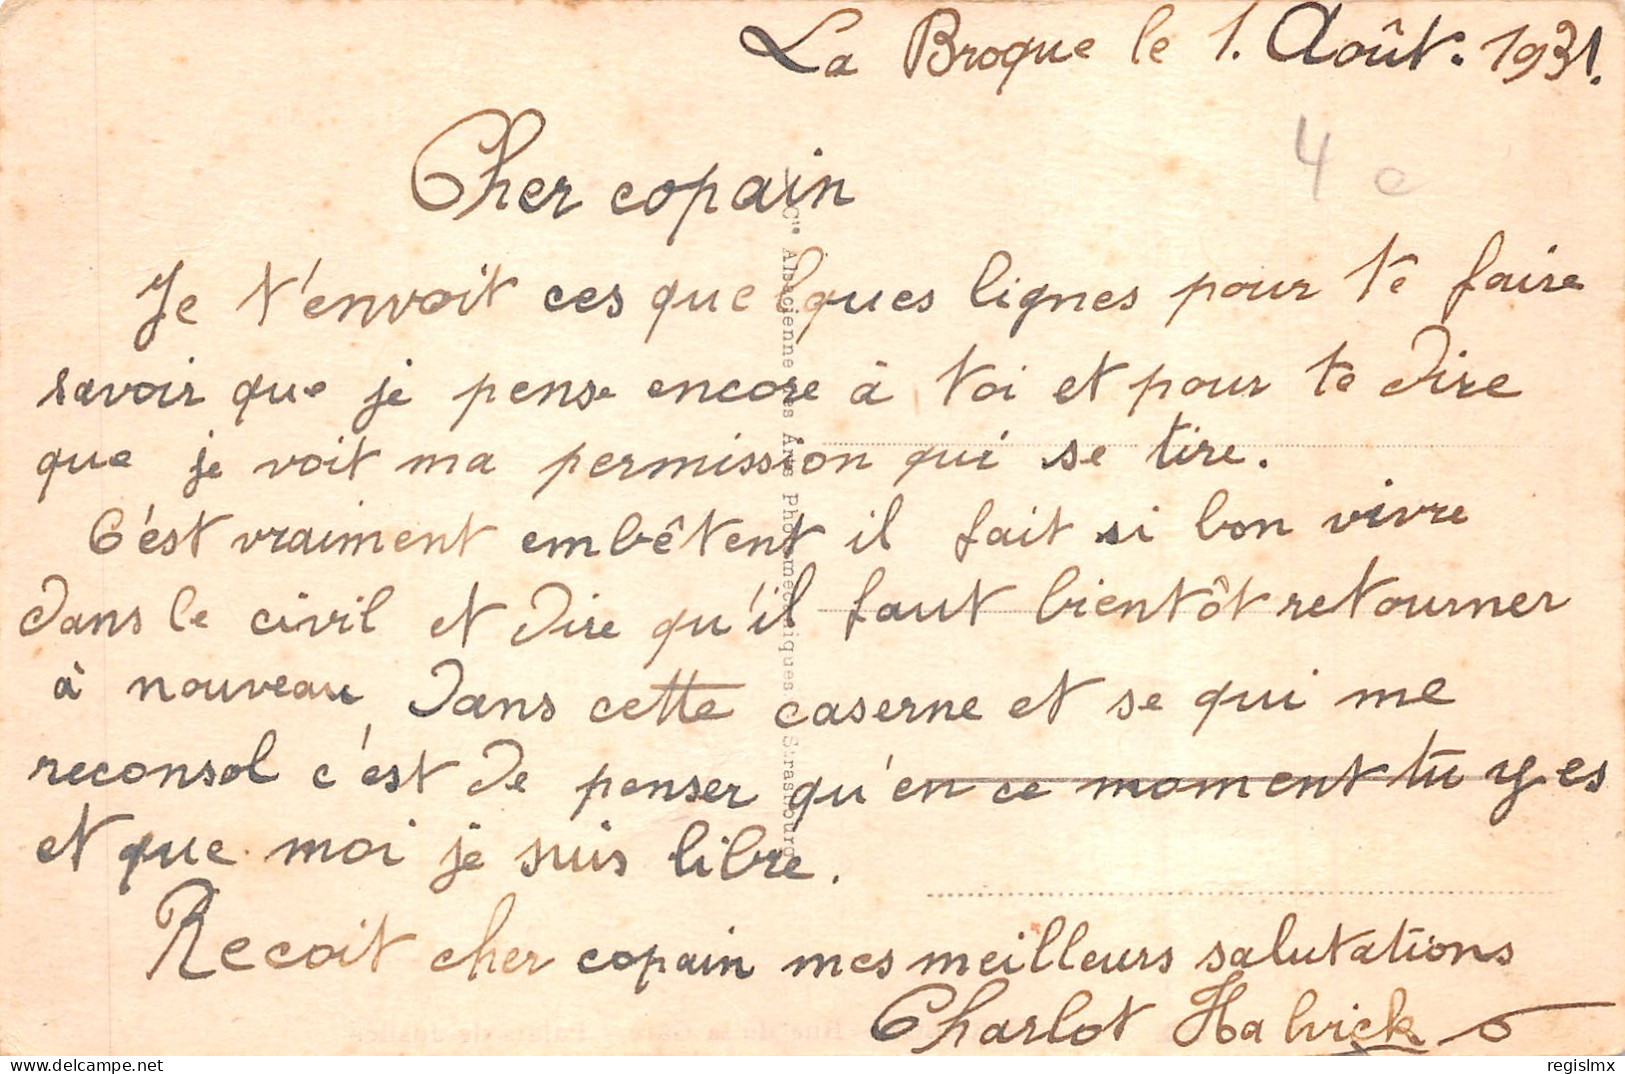 La Broque le 1. Août. 1931.
4 e
Cher copain
Je t'envoit ces quelques lignes pour te faire
savoir que je pense encore à toi et pour te dire
que je voit ma permission qui se tire.
C'est vraiment embêtent il fait si bon vivre
dans le civil et dire qu'il faut bientôt retourner
à nouveau dans cette caserne et se qui me
reconsol c'est de penser qu'en ce moment tu y es
et que moi je suis libre.
Recoit cher copain mes meilleurs salutations
Charlot Halvick
Cie Alsacienne des Arts Photomécaniques. Strasbourg
regislmx